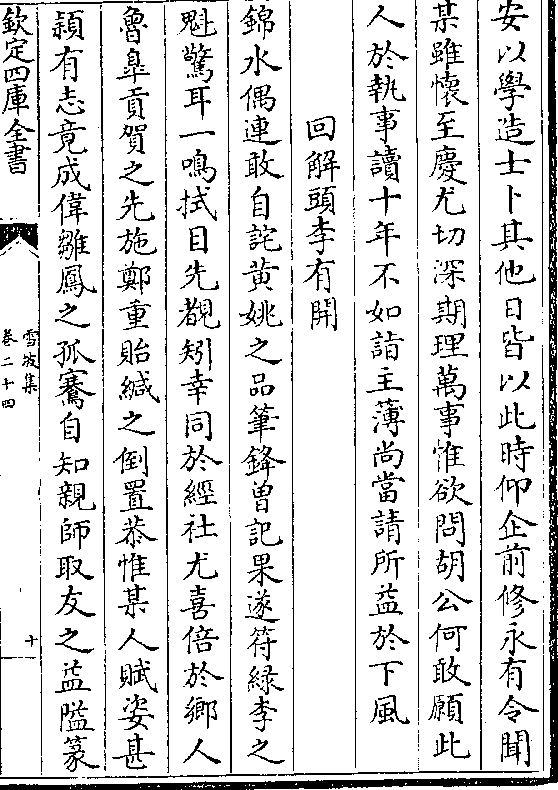 安以學造士卜其他日皆以此時仰企前修永有令聞
某雖懷至慶尤切深期理萬事惟欲問胡公何敢願此
人於執事讀十年不如詣主簿尚當請所益於下風
回解頭李有開
錦水偶連敢自詫黄姚之品筆鋒曽記果遂符緑李之
魁驚耳一鳴拭目先覩矧幸同於經社尤喜倍於鄉人
魯臯貢賀之先施鄭重貽緘之倒置恭惟某人賦姿甚
頴有志竟成偉雛鳳之孤騫自知親師取友之益隘篆
欽定四庫全書
雪坡集
卷二十四
十